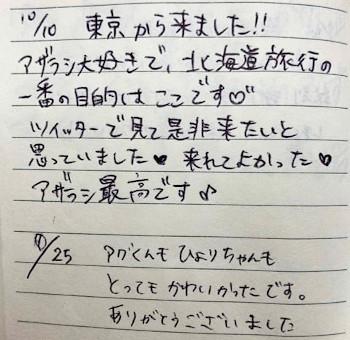 10/10 東京から来ました!!
アザラシ大好きで、北海道旅行の
一番の目的はここです♡♡
ツイッターで見て是非来たいと
思っていました♥ 来れてよかった♥
アザラシ最高です♪
/25 アグくんも ひよりちゃんも
とっても かわいかったです。
ありがとうございました